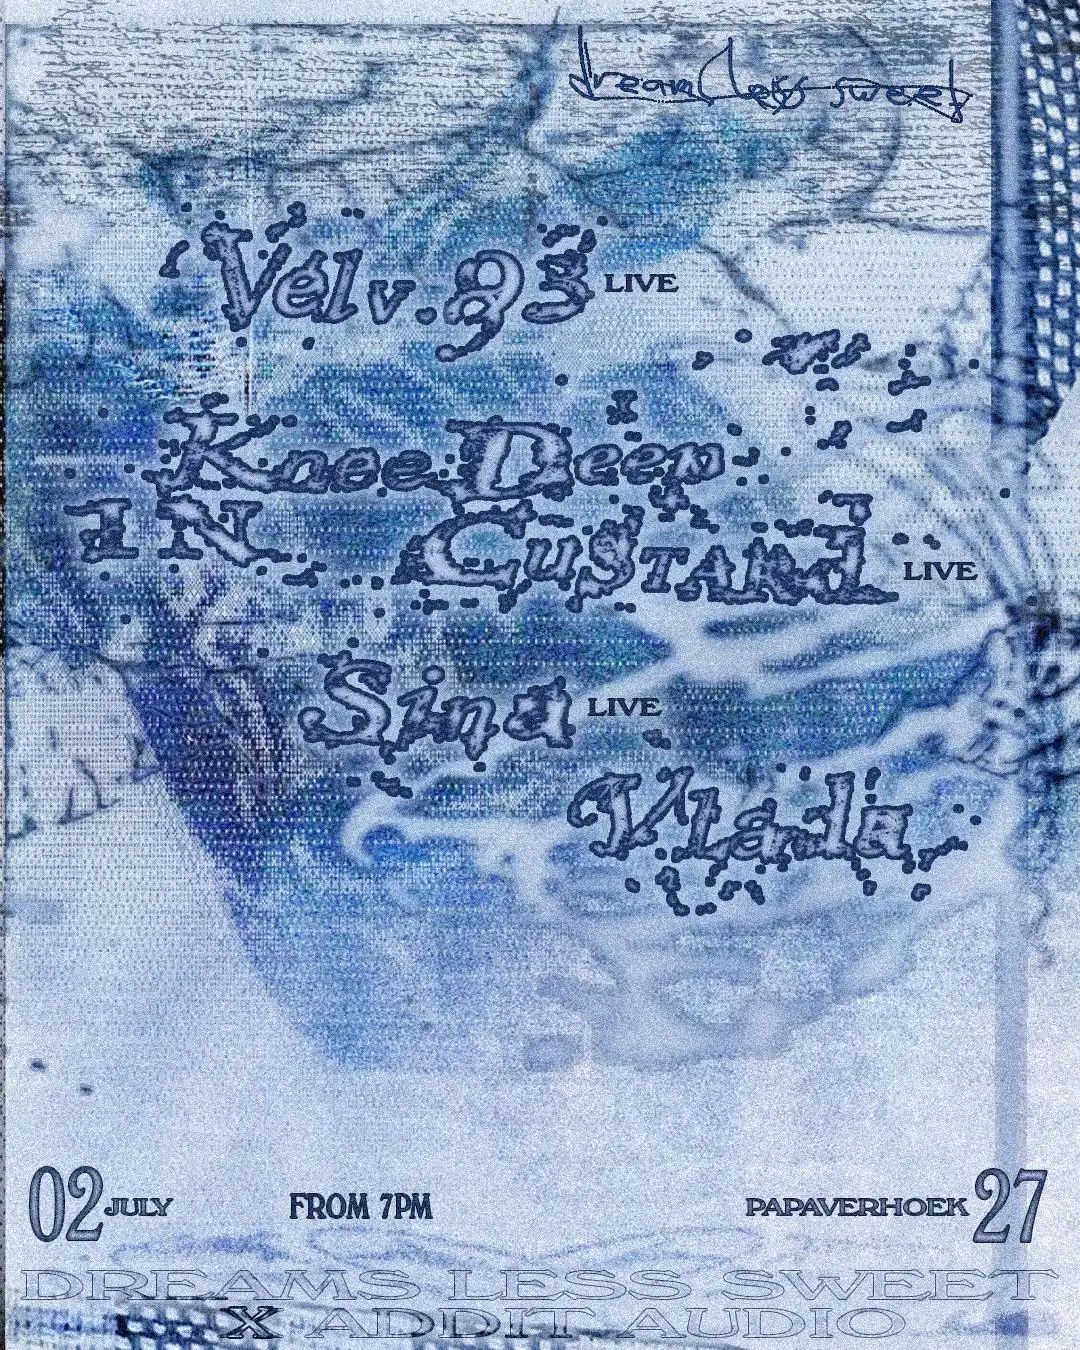 dream less sweet
Velv.93 LIVE
Knee Deep
IN Custard LIVE
Sina LIVE
Vlada
02 JULY FROM 7PM PAPAVERHOEK 27
DREAMS LESS SWEET
X ADDIT AUDIO